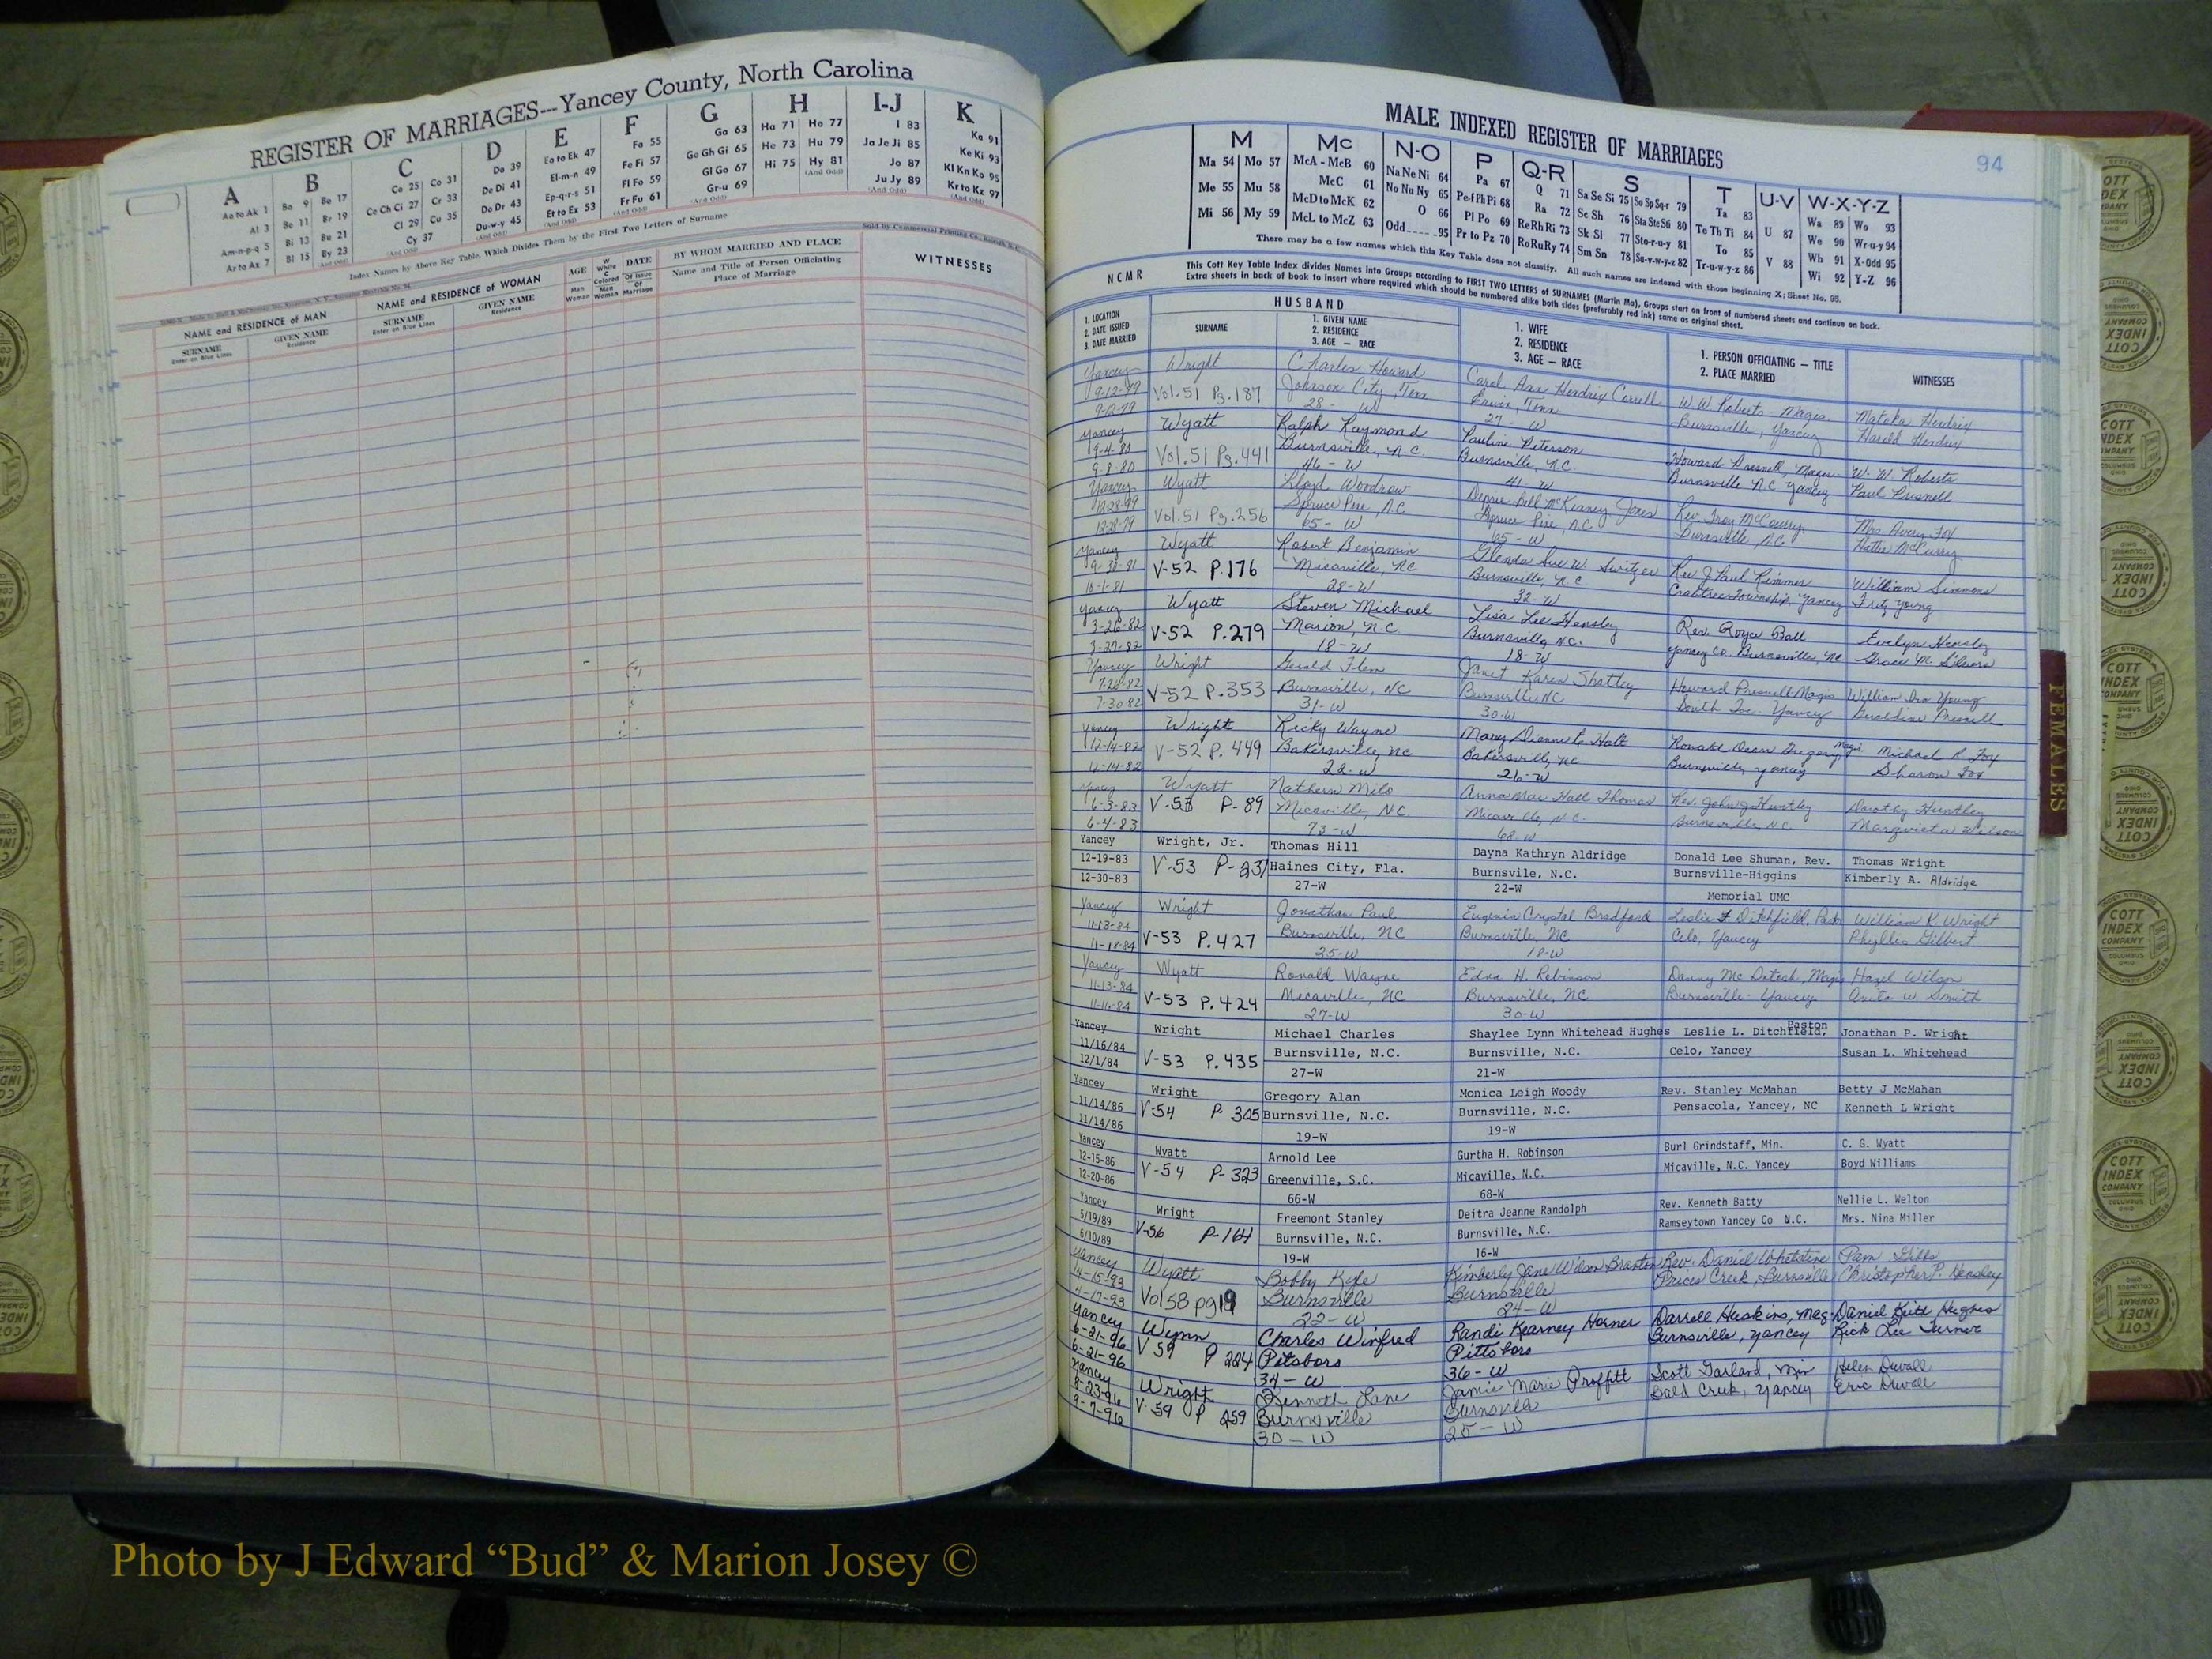 REGISTER OF MARRIAGES---Yancey County, North Carolina
A B C D E F G H I-J K
Aa to Ak 1
Al 3
Am-n-p-q 5
Ar to Ax 7
Ba 9 Bo 17
Be 11 Br 19
Bi 13 Bu 21
Bl 15 By 23
Ca 25 Co 31
Ce Ch Ci 27 Cr 33
Cl 29 Cu 35
Cy 37
Da 39
De Di 41
Do Dr 43
Du-w-y 45
Ea to Ek 47
El-m-n 49
Ep-q-r-s 51
Et to Ex 53
Fa 55
Fe Fi 57
Fl Fo 59
Fr Fu 61
Ga 63
Ge Gh Gi 65
Gl Go 67
Gr-u 69
Ha 71 Ho 77
He 73 Hu 79
Hi 75 Hy 81
(And Odd)
I 83
Ja Je Ji 85
Jo 87
Ju Jy 89
(And Odd)
Ka 91
Ke Ki 93
Kl Kn Ko 95
Kr to Kz 97
(And Odd)
Index Names by Above Key Table, Which Divides Them by the First Two Letters of Surname
Sold by Commercial Printing Co.
NAME and RESIDENCE of MAN
SURNAME
Enter on Blue Lines
GIVEN NAME
Residence
NAME and RESIDENCE of WOMAN
SURNAME
Enter on Blue Lines
GIVEN NAME
Residence
AGE
Man
Woman
W
White
C
Colored
Man
Woman
DATE
Of Issue
Of
Marriage
BY WHOM MARRIED AND PLACE
Name and Title of Person Officiating
Place of Marriage
WITNESSES
MALE INDEXED REGISTER OF MARRIAGES
94
M Mc N-O P Q-R S T U-V W-X-Y-Z
Ma 54 Mo 57
Me 55 Mu 58
Mi 56 My 59
McA - McB 60
McC 61
McD to McK 62
McL to McZ 63
Na Ne Ni 64
No Nu Ny 65
O 66
Odd 95
Pa 67
Pe-f Ph Pi 68
Pl Po 69
Pr to Pz 70
Q 71
Ra 72
Re Rh Ri 73
Ro Ru Ry 74
Sa Se Si 75 So Sp Sq-r 79
Sc Sh 76 Sta Ste Sti 80
Sk Sl 77 Sto-r-u-y 81
Sm Sn 78 Su-v-w-y-z 82
Ta 83
Te Th Ti 84
To 85
Tr-u-w-y-z 86
U 87
V 88
Wa 89 Wo 93
We 90 Wr-u-y 94
Wh 91 X-Odd 95
Wi 92 Y-Z 96
There may be a few names which this Key Table does not classify. All such names are indexed with those beginning X; Sheet No. 95.
NCMR
This Cott Key Table Index divides Names into Groups according to FIRST TWO LETTERS of SURNAMES (Martin Ma), Groups start on front of numbered sheets and continue on back.
Extra sheets in back of book to insert where required which should be numbered alike both sides (preferably red ink) same as original sheet.
HUSBAND
1. LOCATION
2. DATE ISSUED
3. DATE MARRIED
SURNAME
1. GIVEN NAME
2. RESIDENCE
3. AGE — RACE
1. WIFE
2. RESIDENCE
3. AGE — RACE
1. PERSON OFFICIATING — TITLE
2. PLACE MARRIED
WITNESSES
Yancey Wright Charles Howard Carol Ann Hendrix Correll W W Roberts Magis. Mataka Hendrix
9-12-79 Vol.51 Pg.187 Johnson City, Tenn Erwin, Tenn Burnsville, Yancey Harold Hendrix
9-12-79 28 - W 27 - W
Yancey Wyatt Ralph Raymond Pauline Peterson Howard Presnell, Magis. W. W. Roberts
9-4-80 Vol.51 Pg.441 Burnsville, N.C. Burnsville, N.C. Burnsville N.C. Yancey Paul Presnell
9-8-80 46 - W 41 - W
Yancey Wyatt Lloyd Woodrow Dessie Bell McKinney Jones Rev. Troy McCurry Mrs. Avery Fox
12-28-79 Vol.51 Pg.256 Spruce Pine, NC Spruce Pine, NC Burnsville, NC Hattie McCurry
12-28-79 65 - W 65 - W
Yancey Wyatt Robert Benjamin Glenda Sue W. Switzer Rev J. Paul Rimmer William Simmons
9-30-81 V-52 P.176 Micaville, NC Burnsville, N.C Crabtree Township, Yancey Fritz Young
10-1-81 28-W 32-W
Yancey Wyatt Steven Michael Lisa Lee Hensley Rev. Royce Ball Evelyn Hensley
3-26-82 V-52 P.279 Marion, N.C. Burnsville, N.C. Yancey Co. Burnsville, NC Grace M. Silvers
3-27-82 18-W 18-W
Yancey Wright Gerald Flem Janet Karen Shatley Howard Presnell Magis William Ivo Young
7-26-82 V-52 P.353 Burnsville, NC Burnsville NC South Toe - Yancey Geraldine Presnell
7-30-82 31-W 30-W
Yancey Wright Ricky Wayne Mary Dianne P. Holt Ronald Dean Gregory, Magis. Michael R Fox
12-14-82 V-52 P. 449 Bakersville, NC Bakersville, NC Burnsville, Yancey Sharon Fox
12-14-82 22-W 26-W
Yancey Wyatt Nathern Milo Anna Mae Hall Thomas Rev. John J Huntley Dorothy Huntley
6-3-83 V-53 P-89 Micaville, N.C. Micaville, N.C. Burnsville, NC Margvieta Wilson
6-4-83 73-W 68-W
Yancey Wright, Jr. Thomas Hill Dayna Kathryn Aldridge Donald Lee Shuman, Rev. Thomas Wright
12-19-83 V-53 P-237 Haines City, Fla. Burnsvile, N.C. Burnsville-Higgins Kimberly A. Aldridge
12-30-83 27-W 22-W Memorial UMC
Yancey Wright Jonathan Paul Eugenia Crystal Bradford Leslie F Ditchfield, Pastor William K. Wright
11-13-84 V-53 P.427 Burnsville, NC Burnsville, NC Celo, Yancey Phyllis Gilbert
11-18-84 25-W 18-W
Yancey Wyatt Ronald Wayne Edna H. Robinson Danny Mc Detach, Magis Hazel Wilson
11-13-84 V-53 P.424 Micaville, NC Burnsville, NC Burnsville - Yancey Anita W Smith
11-16-84 27-W 30-W
Yancey Wright Michael Charles Shaylee Lynn Whitehead Hughes Leslie L. Ditchfield, Paston Jonathan P. Wright
11/16/84 V-53 P.435 Burnsville, N.C. Burnsville, N.C. Celo, Yancey Susan L. Whitehead
12/1/84 27-W 21-W
Yancey Wright Gregory Alan Monica Leigh Woody Rev. Stanley McMahan Betty J McMahan
11/14/86 V-54 P-305 Burnsville, N.C. Burnsville, N.C. Pensacola, Yancey, NC Kenneth L Wright
11/14/86 19-W 19-W
Yancey Wyatt Arnold Lee Gurtha H. Robinson Burl Grindstaff, Min. C. G. Wyatt
12-15-86 V-54 P-323 Greenville, S.C. Micaville, N.C. Micaville, N.C. Yancey Boyd Williams
12-20-86 66-W 68-W
Yancey Wright Freemont Stanley Deitra Jeanne Randolph Rev. Kenneth Batty Nellie L. Welton
5/19/89 V-56 P-164 Burnsville, N.C. Burnsville, N.C. Ramseytown Yancey Co N.C. Mrs. Nina Miller
6/10/89 19-W 16-W
Yancey Wyatt Bobby Kyle Kimberly Jane Wilson Braxton Rev. Daniel Whetstine Pam Gibbs
4-15-93 Vol 58 pg 19 Burnsville Burnsville Prices Creek, Burnsville Christopher P. Hensley
4-17-93 22-W 24-W
Yancey Wynn Charles Winfred Randi Kearney Horner Darrell Huskins, Mag. Daniel Keith Hughes
6-21-96 V 59 P 224 Pitsboro Pittsboro Burnsville, Yancey Rick Lee Turner
6-21-96 34-W 36-W
Yancey Wright Kenneth Lane Jamie Marie Proffitt Scott Garland, Min Helen Duvall
8-23-96 V-59 P 259 Burnsville Burnsville Bald Creek, Yancey Eric Duvall
9-7-96 30-W 25-W
FEMALES
COTT
INDEX
COMPANY
COLUMBUS
OHIO
Photo by J Edward “Bud” & Marion Josey ©